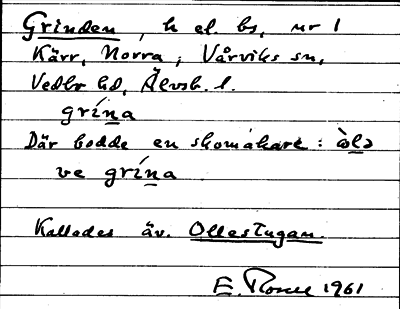 Grinden, h el. bs, nr 1
Kärr, Norra, Vårviks sn,
Vedbo hd, Älvsb. l.
grína
Där bodde en skomakare: òlə
ve grína
Kallades äv. Ollestugan.
E. Rosell 1961